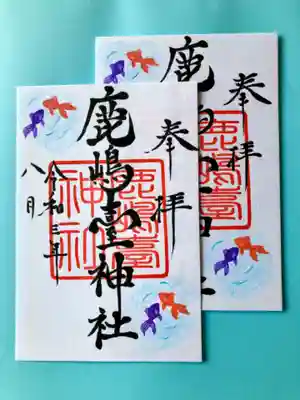 奉拝
鹿嶋臺神社
令和三年
八月
鹿嶋臺
神社
奉拝
鹿
社
鹿嶋臺